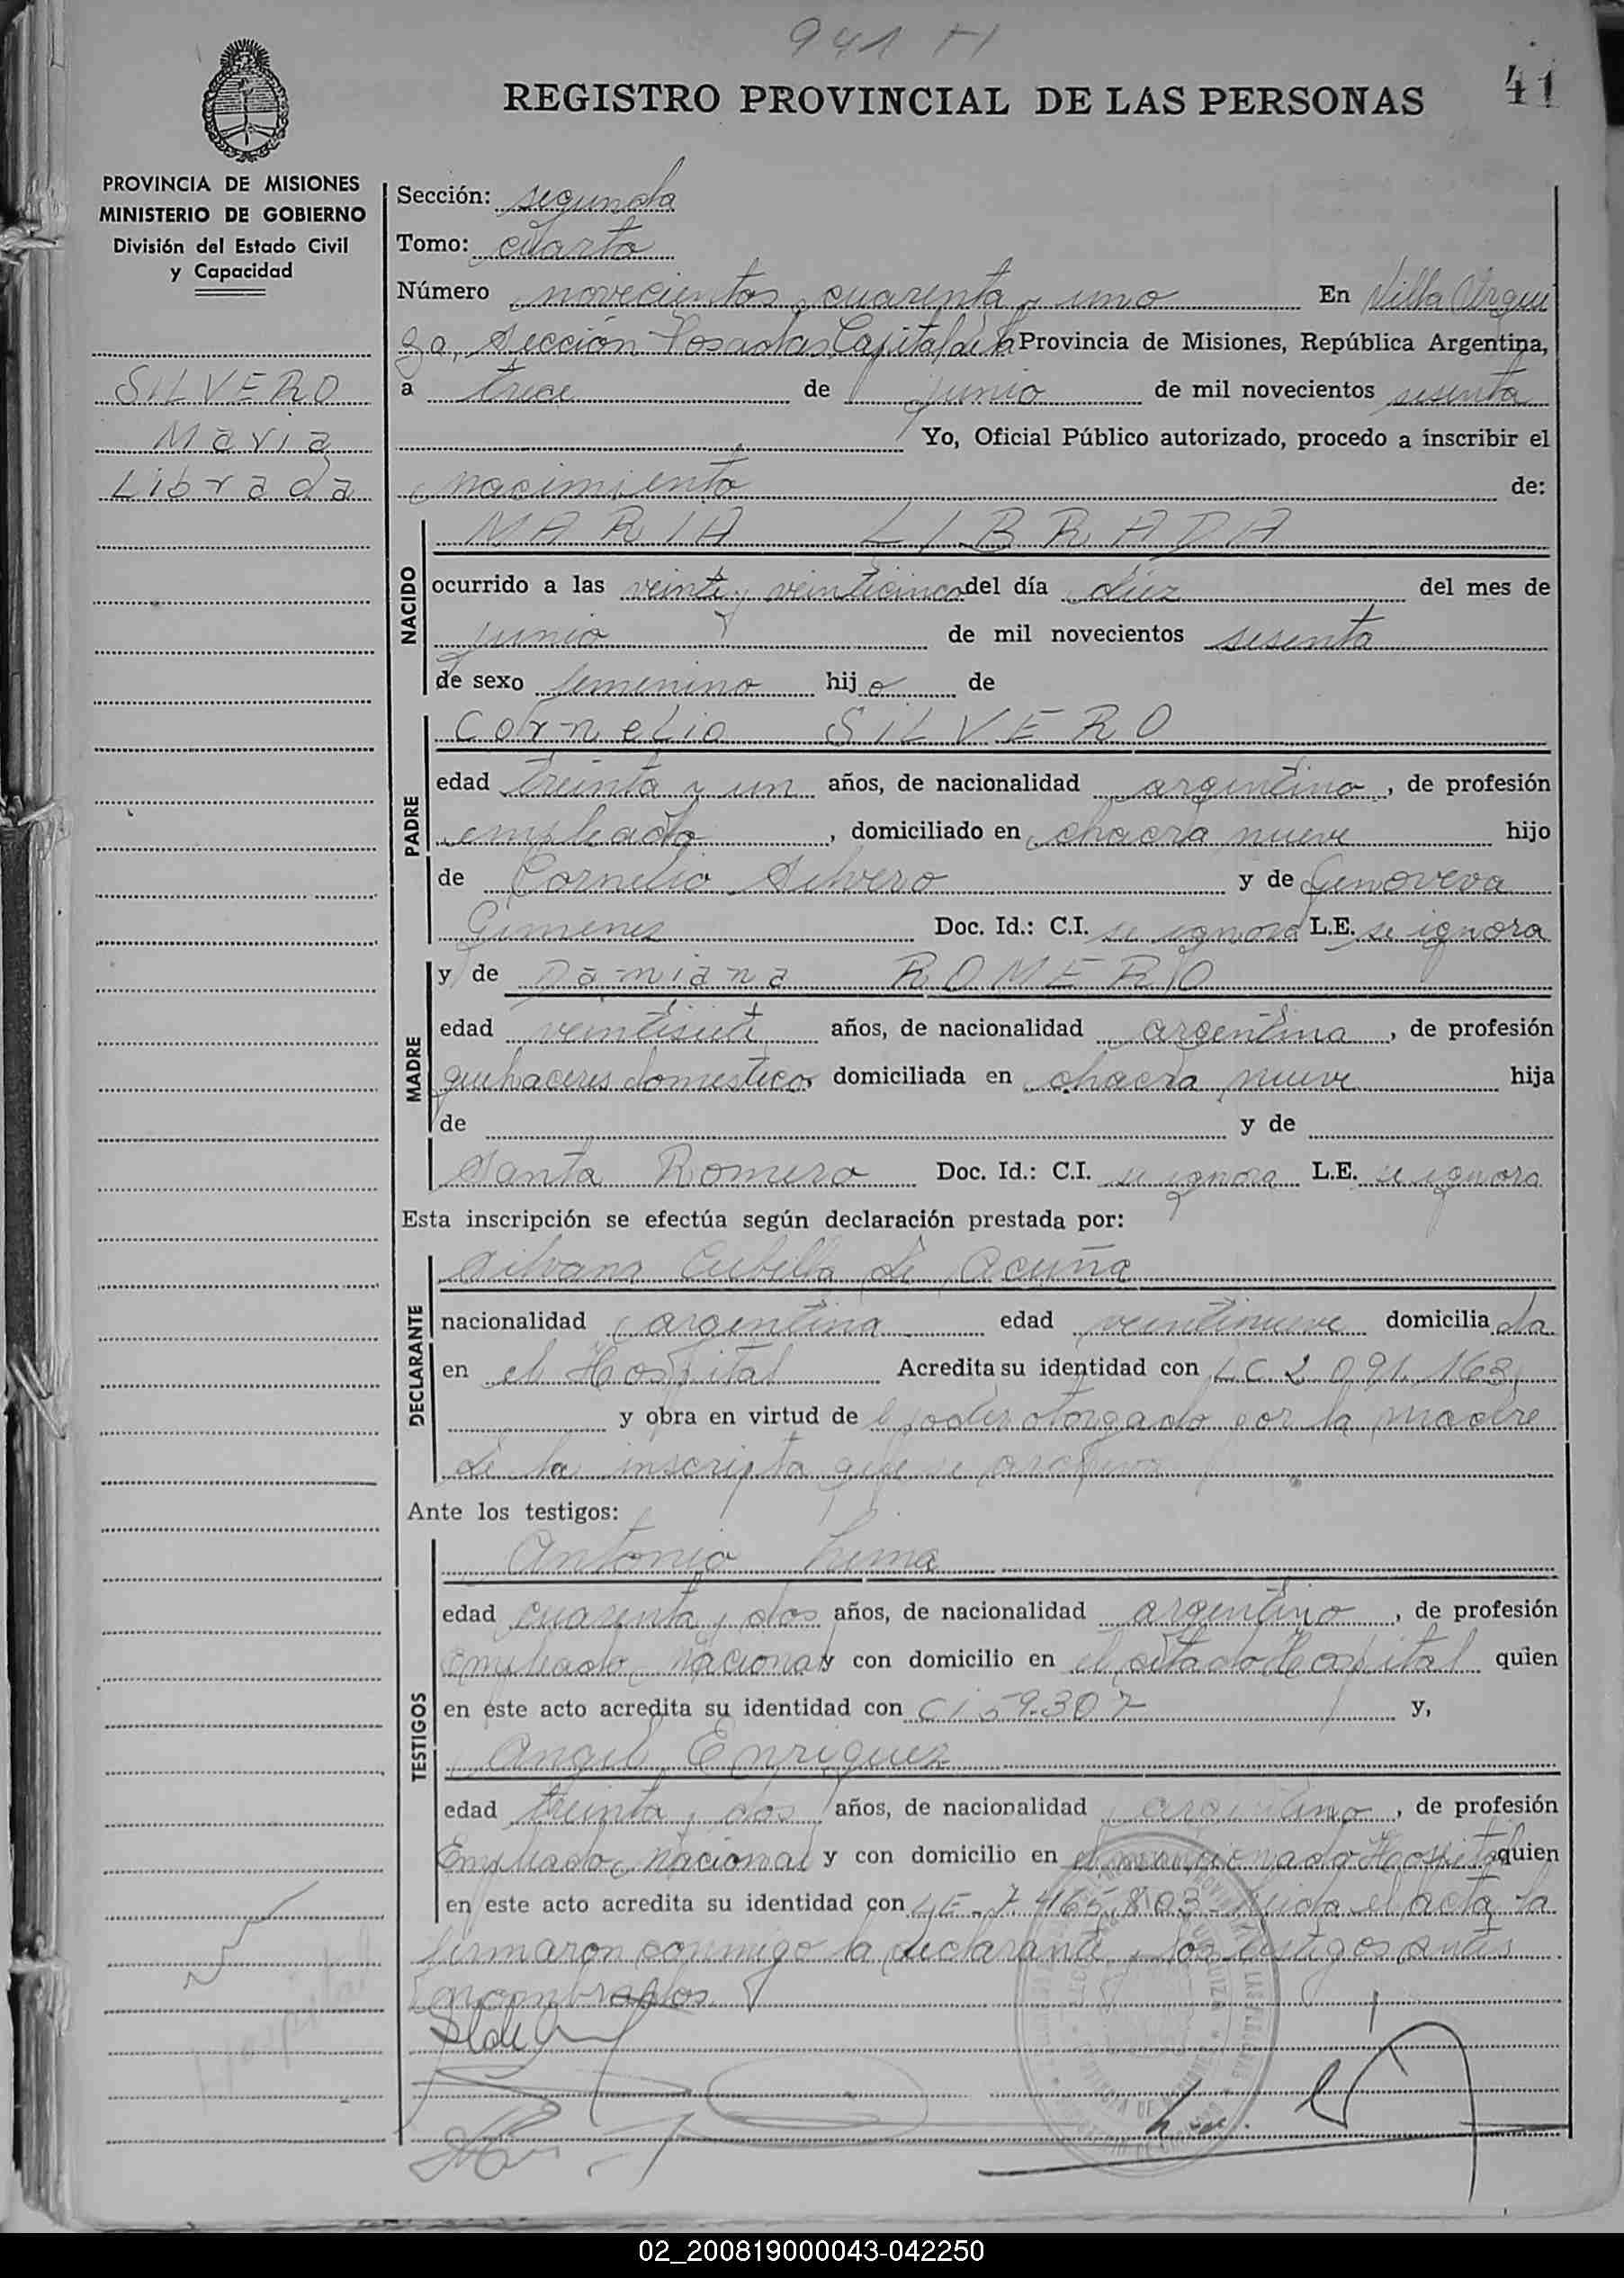 941 H
41
REGISTRO PROVINCIAL DE LAS PERSONAS
PROVINCIA DE MISIONES
MINISTERIO DE GOBIERNO
División del Estado Civil
y Capacidad
SILVERO
María
Librada
Sección: segunda
Tomo: cuarto
Número novecientos cuarenta y uno En Villa Urqui
za, Sección Posadas Capital de la Provincia de Misiones, República Argentina,
a trece de junio de mil novecientos sesenta
Yo, Oficial Público autorizado, procedo a inscribir el
nacimiento de:
NACIDO
MARIA LIBRADA
ocurrido a las veinte y veinticinco del día diez del mes de
junio de mil novecientos sesenta
de sexo femenino hij a de
PADRE
Cornelio SILVERO
edad treinta y un años, de nacionalidad argentino, de profesión
empleado, domiciliado en chacra nueve hijo
de Cornelio Silvero y de Genoveva
Gimenez Doc. Id.: C.I. se ignora L.E. se ignora
MADRE
y de Damiana ROMERO
edad veintisiete años, de nacionalidad argentina, de profesión
quehaceres domesticos domiciliada en chacra nueve hija
de y de
Santa Romero Doc. Id.: C.I. se ignora L.E. se ignora
Esta inscripción se efectúa según declaración prestada por:
DECLARANTE
Silvana Cubilla de Acuña
nacionalidad argentina edad veintinueve domicilia da
en el Hospital Acredita su identidad con L.C. 2.091.163
y obra en virtud de poder otorgado por la madre
de la inscripta que se archiva
Ante los testigos:
TESTIGOS
Antonio Lima
edad cuarenta y dos años, de nacionalidad argentino, de profesión
Empleado Nacional y con domicilio en el citado Hospital quien
en este acto acredita su identidad con CI 59.307 y,
Angel Enriquez
edad treinta y dos años, de nacionalidad argentino, de profesión
Empleado Nacional y con domicilio en el mencionado Hospital quien
en este acto acredita su identidad con LE. 7.465.803 Leida el acta la
firmaron conmigo la declarante y los testigos antes
nombrados
Hospital
02_200819000043-042250